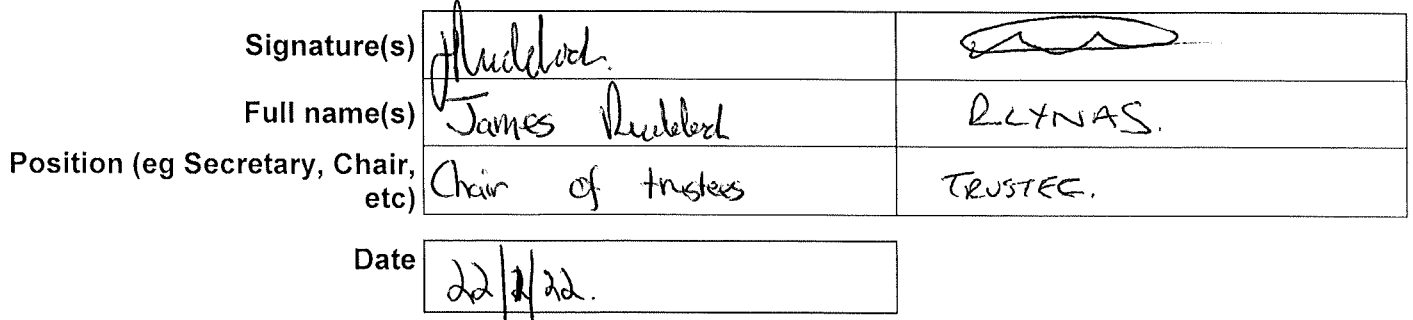 Signature(s)
Full name(s) James Ruddock R LYNAS.
Position (eg Secretary, Chair,
etc) Chair of trustees TRUSTEE.
Date 22/ /22.